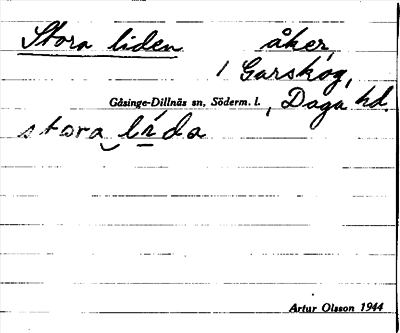 Stora liden åker,
1 Garskog,
Gåsinge-Dillnäs sn, Söderm. l., Daga hd.
stora
Artur Olsson 1944